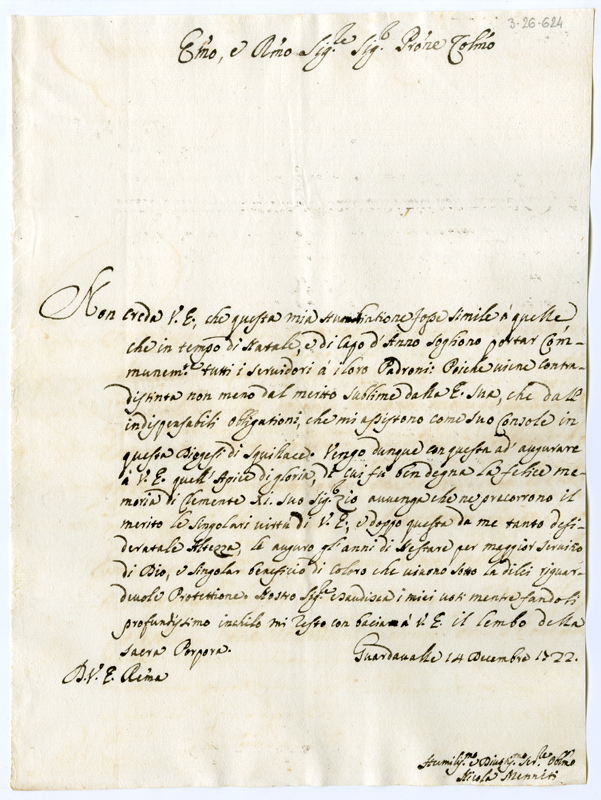 3-26-624
Emo, e Rmo Sig.re Sig.r Prone Colmo
Non creda V. E., che questa mia humiliatione fosse simile á quelle
che in tempo di Natale, e di Capo d'Anno sogliono portar Com-
munem.te tutti i servidori á i loro Padroni: Poiche viene contra-
distinta non meno dal merito sublime dalla E. Sua, che dalle
indispensabili obligationi, che mi assistono come suo Console in
questa Diogesi di Squillace. Vengo dunque con questa ad' augurare
á V. E. quell' Apice di gloria, di cui fu ben degna la felice me-
moria di Clemente XI. suo Sig.r Zio avvenga che ne precorrono il
merito le singolari virtù di V. E., e doppo questa da me tanto desi-
derata Altezza, le auguro gl'anni di Nestare per maggior servitio
di Dio, e singolar beneficio di coloro che vivono sotto la di lei riguar-
devole Protettione. Nostro Sig.re esaudisca i miei voti mentre fandoli
profundissimo inchilo mi resto con baciare á V. E. il lembo della
sacra Porpora. Guardavalle 14 Decembre 1722.
D. V. E. Rema
Humiliss.mo e Divotiss.mo Ser.re Obl.mo
Nicola Menniti